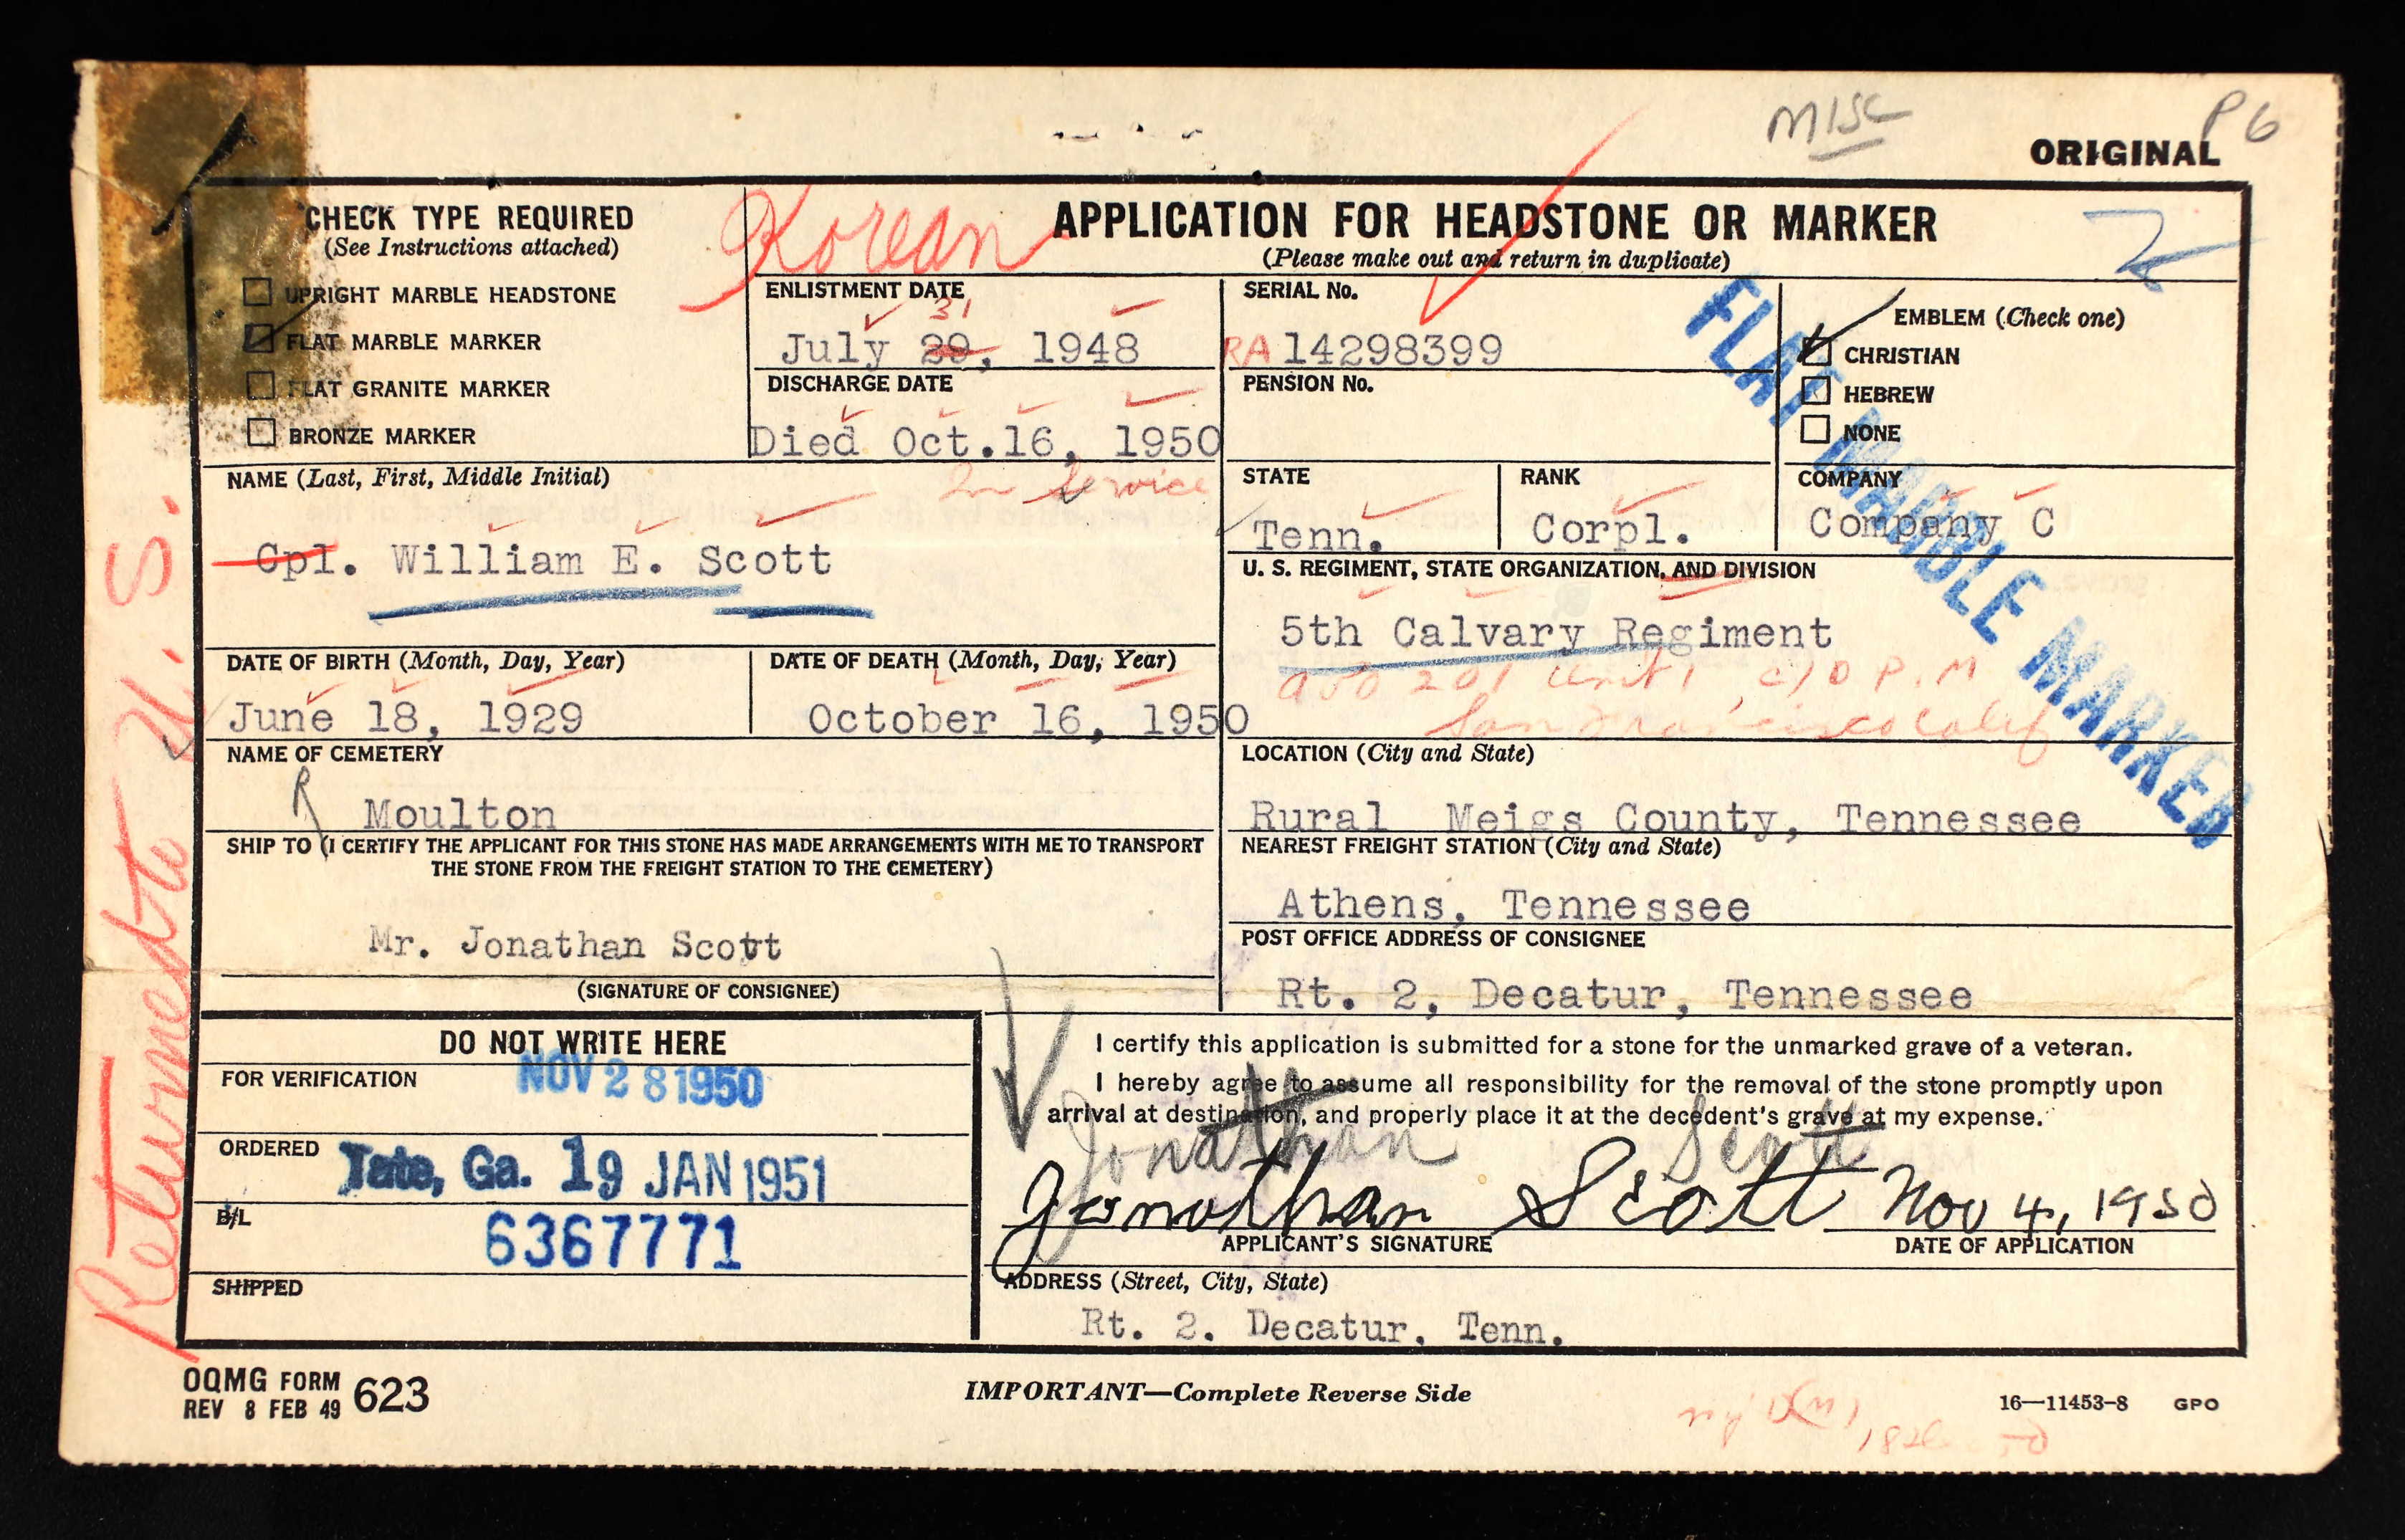 MISC
P 6
ORIGINAL
CHECK TYPE REQUIRED
(See Instructions attached)
UPRIGHT MARBLE HEADSTONE
FLAT MARBLE MARKER
FLAT GRANITE MARKER
BRONZE MARKER
Korean
APPLICATION FOR HEADSTONE OR MARKER
(Please make out and return in duplicate)
ENLISTMENT DATE
31
July 29, 1948
DISCHARGE DATE
Died Oct.16, 1950
In Service
SERIAL No.
RA 14298399
PENSION No.
EMBLEM (Check one)
CHRISTIAN
HEBREW
NONE
FLAT MARBLE MARKER
NAME (Last, First, Middle Initial)
Cpl. William E. Scott
STATE
Tenn.
RANK
Corpl.
COMPANY
Company C
U. S. REGIMENT, STATE ORGANIZATION, AND DIVISION
5th Calvary Regiment
201 Unit 1, c/o P.M
San Francisco Calif
DATE OF BIRTH (Month, Day, Year)
June 18, 1929
DATE OF DEATH (Month, Day, Year)
October 16, 1950
NAME OF CEMETERY
R
Moulton
LOCATION (City and State)
Rural Meigs County, Tennessee
SHIP TO (I CERTIFY THE APPLICANT FOR THIS STONE HAS MADE ARRANGEMENTS WITH ME TO TRANSPORT
THE STONE FROM THE FREIGHT STATION TO THE CEMETERY)
Mr. Jonathan Scott
(SIGNATURE OF CONSIGNEE)
NEAREST FREIGHT STATION (City and State)
Athens, Tennessee
POST OFFICE ADDRESS OF CONSIGNEE
Rt. 2, Decatur, Tennessee
DO NOT WRITE HERE
FOR VERIFICATION
NOV 28 1950
ORDERED
Tate, Ga. 19 JAN 1951
B/L
6367771
SHIPPED
I certify this application is submitted for a stone for the unmarked grave of a veteran.
I hereby agree to assume all responsibility for the removal of the stone promptly upon
arrival at destination, and properly place it at the decedent's grave at my expense.
Jonathan Scott
Jonathan Scott Nov 4, 1950
APPLICANT'S SIGNATURE
DATE OF APPLICATION
ADDRESS (Street, City, State)
Rt. 2. Decatur, Tenn.
Returned to U. S.
OQMG FORM 623
REV 8 FEB 49
IMPORTANT—Complete Reverse Side
16—11453-8 GPO